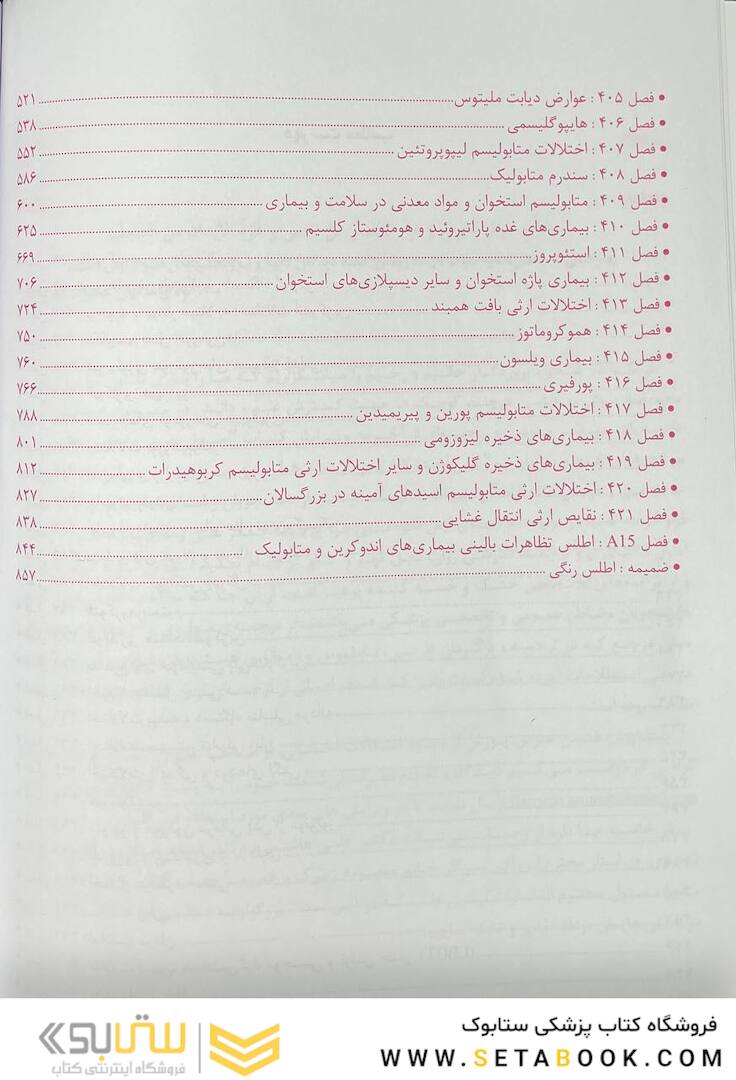 • فصل ۴۰۵ : عوارض دیابت ملیتوس ........ ۵۲۱
• فصل ۴۰۶ : هایپوگلیسمی ........ ۵۳۸
• فصل ۴۰۷ : اختلالات متابولیسم لیپوپروتئین ........ ۵۵۲
• فصل ۴۰۸ : سندرم متابولیک ........ ۵۸۶
• فصل ۴۰۹ : متابولیسم استخوان و مواد معدنی در سلامت و بیماری ........ ۶۰۰
• فصل ۴۱۰ : بیماری‌های غده پاراتیروئید و هومئوستاز کلسیم ........ ۶۲۵
• فصل ۴۱۱ : استئوپروز ........ ۶۶۹
• فصل ۴۱۲ : بیماری پاژه استخوان و سایر دیسپلازی‌های استخوان ........ ۷۰۶
• فصل ۴۱۳ : اختلالات ارثی بافت همبند ........ ۷۲۴
• فصل ۴۱۴ : هموکروماتوز ........ ۷۵۰
• فصل ۴۱۵ : بیماری ویلسون ........ ۷۶۰
• فصل ۴۱۶ : پورفیری ........ ۷۶۶
• فصل ۴۱۷ : اختلالات متابولیسم پورین و پیریمیدین ........ ۷۸۸
• فصل ۴۱۸ : بیماری‌های ذخیره لیزوزومی ........ ۸۰۱
• فصل ۴۱۹ : بیماری‌های ذخیره گلیکوژن و سایر اختلالات ارثی متابولیسم کربوهیدرات ........ ۸۱۲
• فصل ۴۲۰ : اختلالات ارثی متابولیسم اسیدهای آمینه در بزرگسالان ........ ۸۲۷
• فصل ۴۲۱ : نقایص ارثی انتقال غشایی ........ ۸۳۸
• فصل A15 : اطلس تظاهرات بالینی بیماری‌های اندوکرین و متابولیک ........ ۸۴۴
• ضمیمه : اطلس رنگی ........ ۸۵۷
فروشگاه کتاب پزشکی ستابوک
WWW.SETABOOK.COM
ستابوک
فروشگاه اینترنتی کتاب